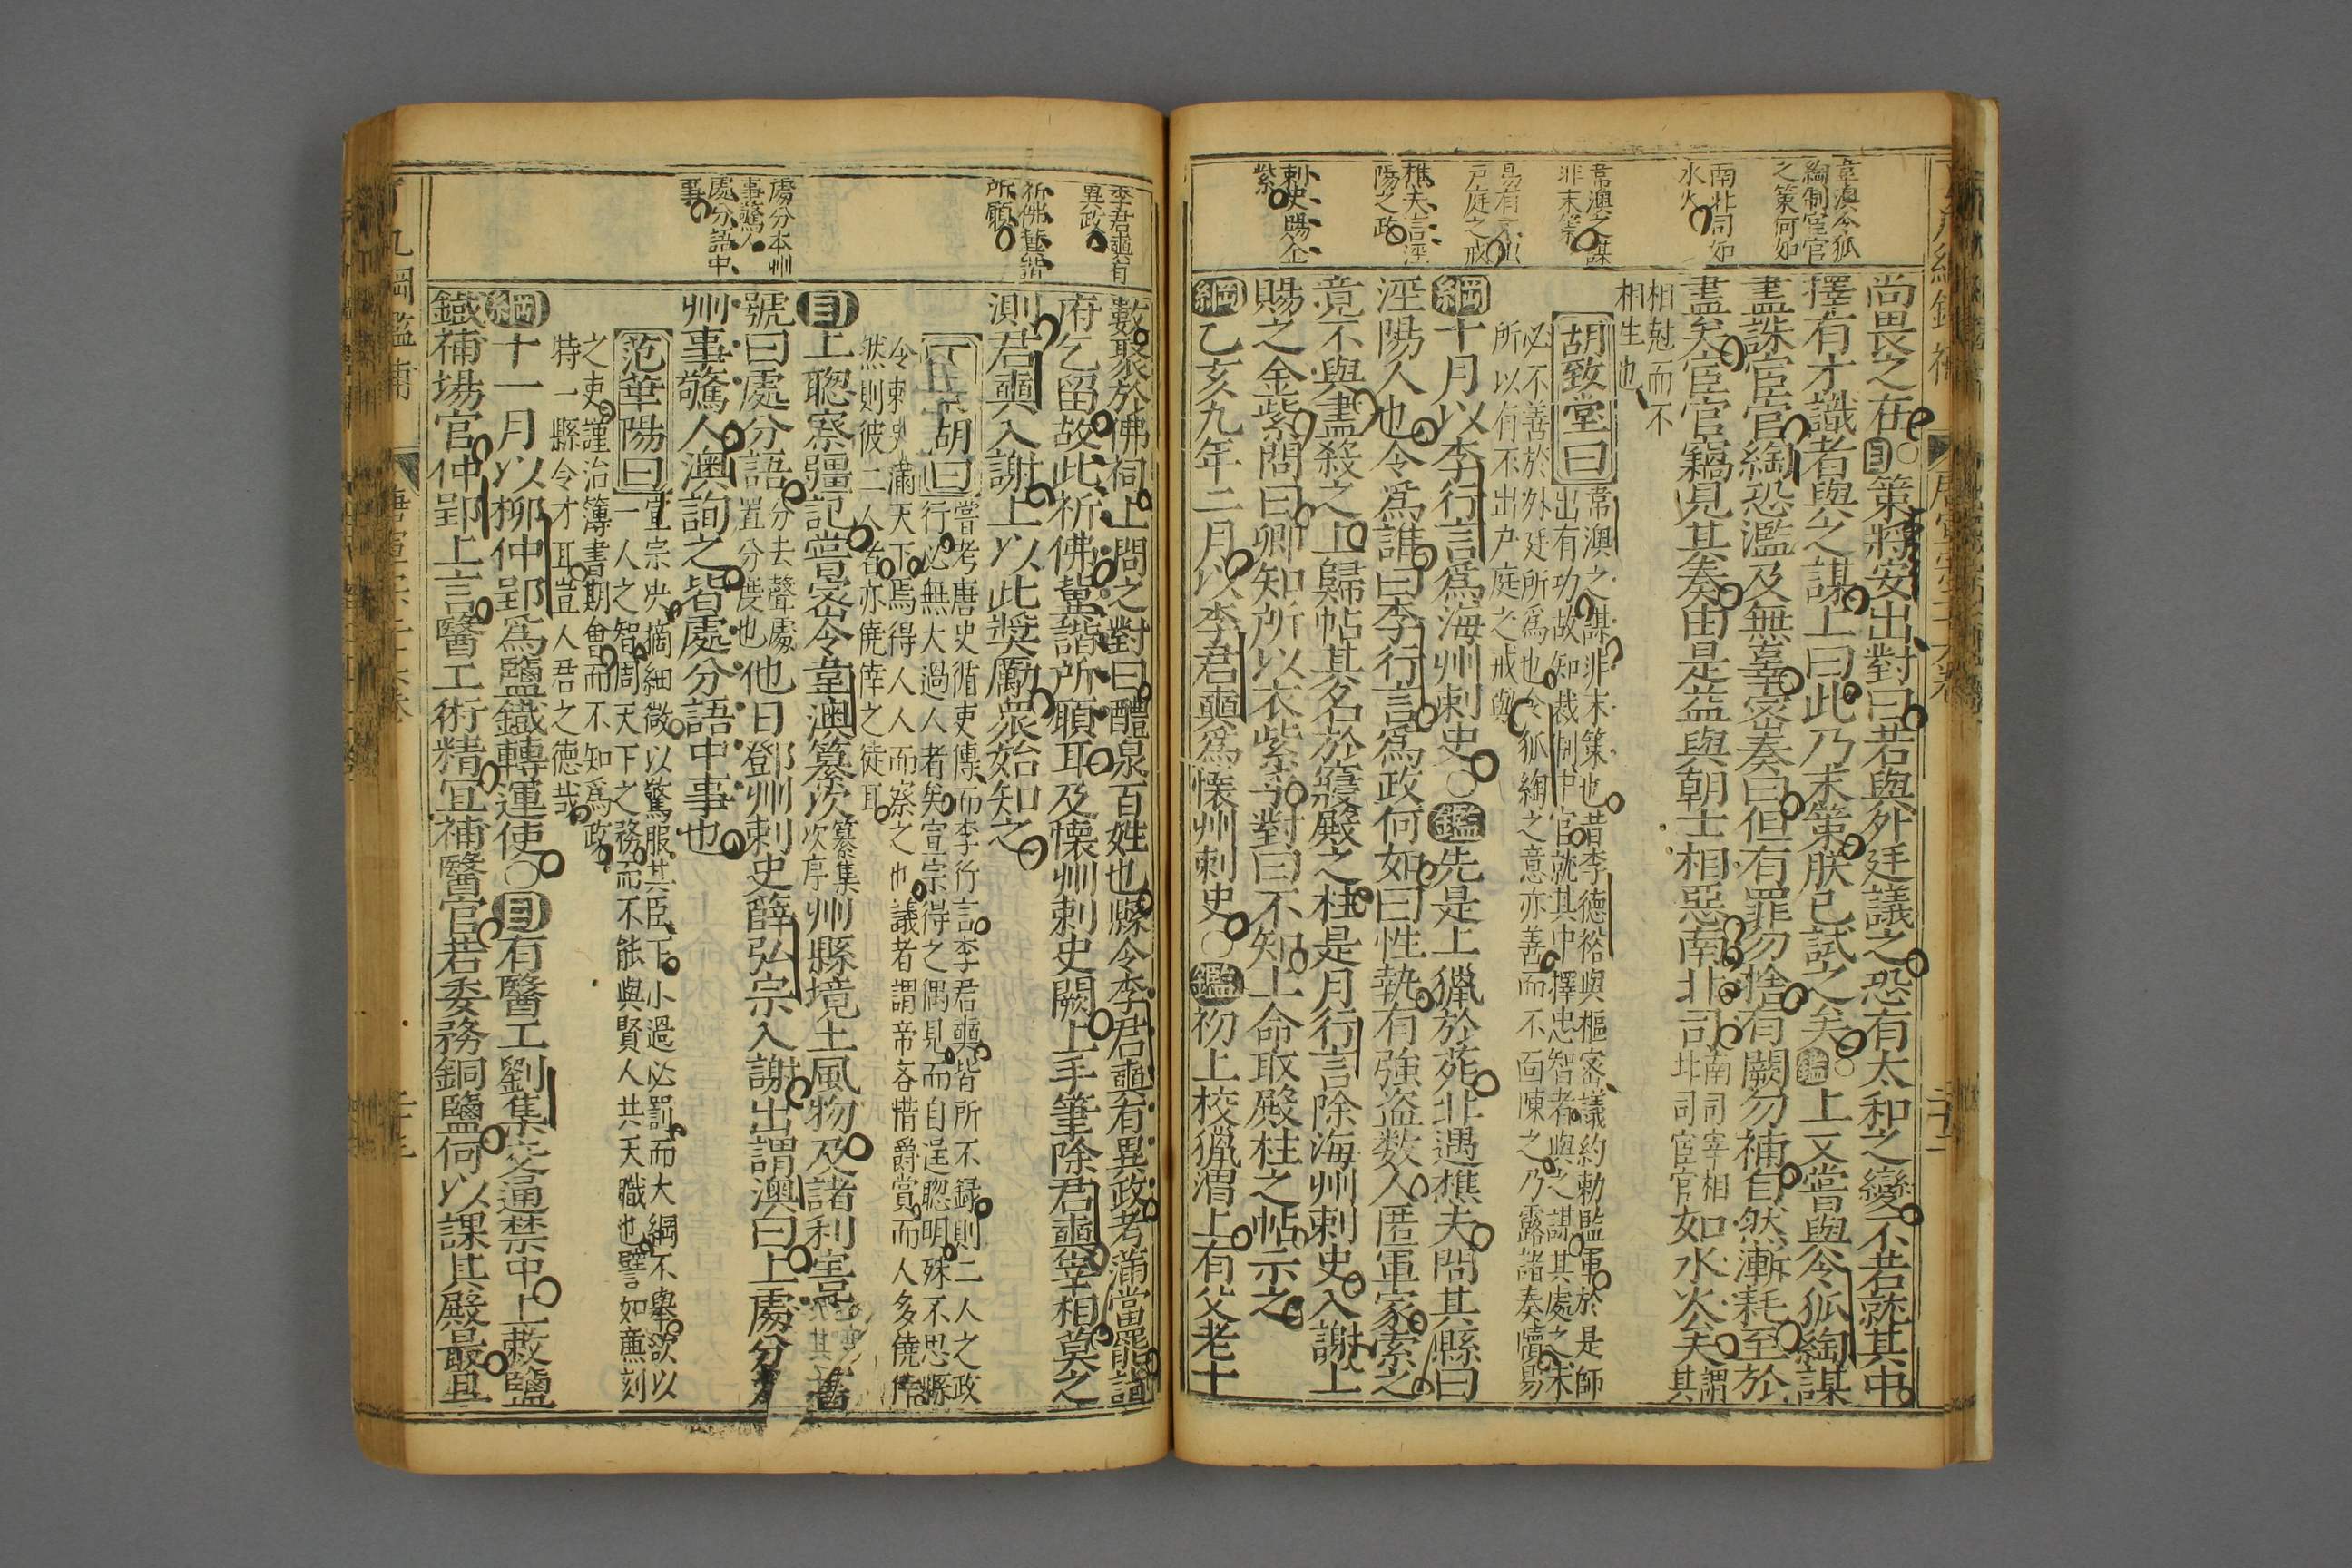 韋澳令狐
綯制宦官
之策何如
南北司如
水火
韋澳之謀
非末策
易有不出
戸庭之戒
樵夫言涇
陽之政
剌史賜金
紫
尚畏之在○目策將安出對曰若與外廷議之恐有太和之變不若就其中
擇有才識者與之謀上曰此乃末策朕已試之矣○鑑上又嘗與令狐綯謀
盡誅宦官綯恐濫及無辜密奏曰但有罪勿捨有闕勿補自然漸耗至於
盡矣宦官竊見其奏由是益與朝士相惡南北司南司宰相北司宦官如水火矣謂其
相尅而不
相生也
胡致堂曰韋澳之謀非末策也昔李德裕與樞密議約勅監軍於是師
出有功故知裁制中官就其中擇忠智者與之謀其處之未
必不善於外廷所爲也令狐綯之意亦善而不面陳之乃露諸奏牘易
所以有不出户庭之戒歟
綱十月以李行言爲海州剌史○鑑先是上獵於苑北遇樵夫問其縣曰
涇陽人也令爲誰曰李行言爲政何如曰性執有強盗数人匿軍家索之
竟不與盡殺之上歸帖其名於寢殿之柱是月行言除海州剌史入謝上
賜之金紫問曰卿知所以衣紫乎對曰不知上命取殿柱之帖示之
綱乙亥九年二月以李君奭爲懐州剌史○鑑初上校獵渭上有父老十
李君奭有
異政
祈佛蟿諧
所願
處分本州
事驚人
處分語中
事
數聚於佛祠上問之對曰醴泉百姓也縣令李君奭有異政考滿當罷詣
府乞留故此祈佛冀諧所願耳及懐州剌史闕上手筆除君奭宰相莫之
測君奭入謝上以此奬勵衆始知之
胡曰嘗考唐史循吏傳而李行言李君奭皆所不録則二人之政
行必無大過人者矣宣宗得之偶見而自逞聰明殊不思縣
令剌史滿天下焉得人人而察之也議者謂帝吝惜爵賞而人多僥倖
然則彼二人者亦僥倖之徒耳
目上聰察彊記嘗密令韋澳纂次纂集次序州縣境土風物及諸利害
號曰處分語分去聲處置分度也他日鄧州剌史薛弘宗入謝出謂澳曰上處分
州事驚人澳詢之皆處分語中事也
范華陽曰宣宗抉摘細微以驚服其臣下小過必罰而大綱不舉欲以
一人之智周天下之務而不能與賢人共天職也譬如㢘刻
之吏謹治簿書期會而不知爲政
特一縣令才耳豈人君之徳哉
綱十一月以柳仲郢爲鹽鐵轉運使○目有醫工劉集交通禁中上敕鹽
鐵補場官仲郢上言醫工術精宜補醫官若委務銅鹽何以課其殿最且